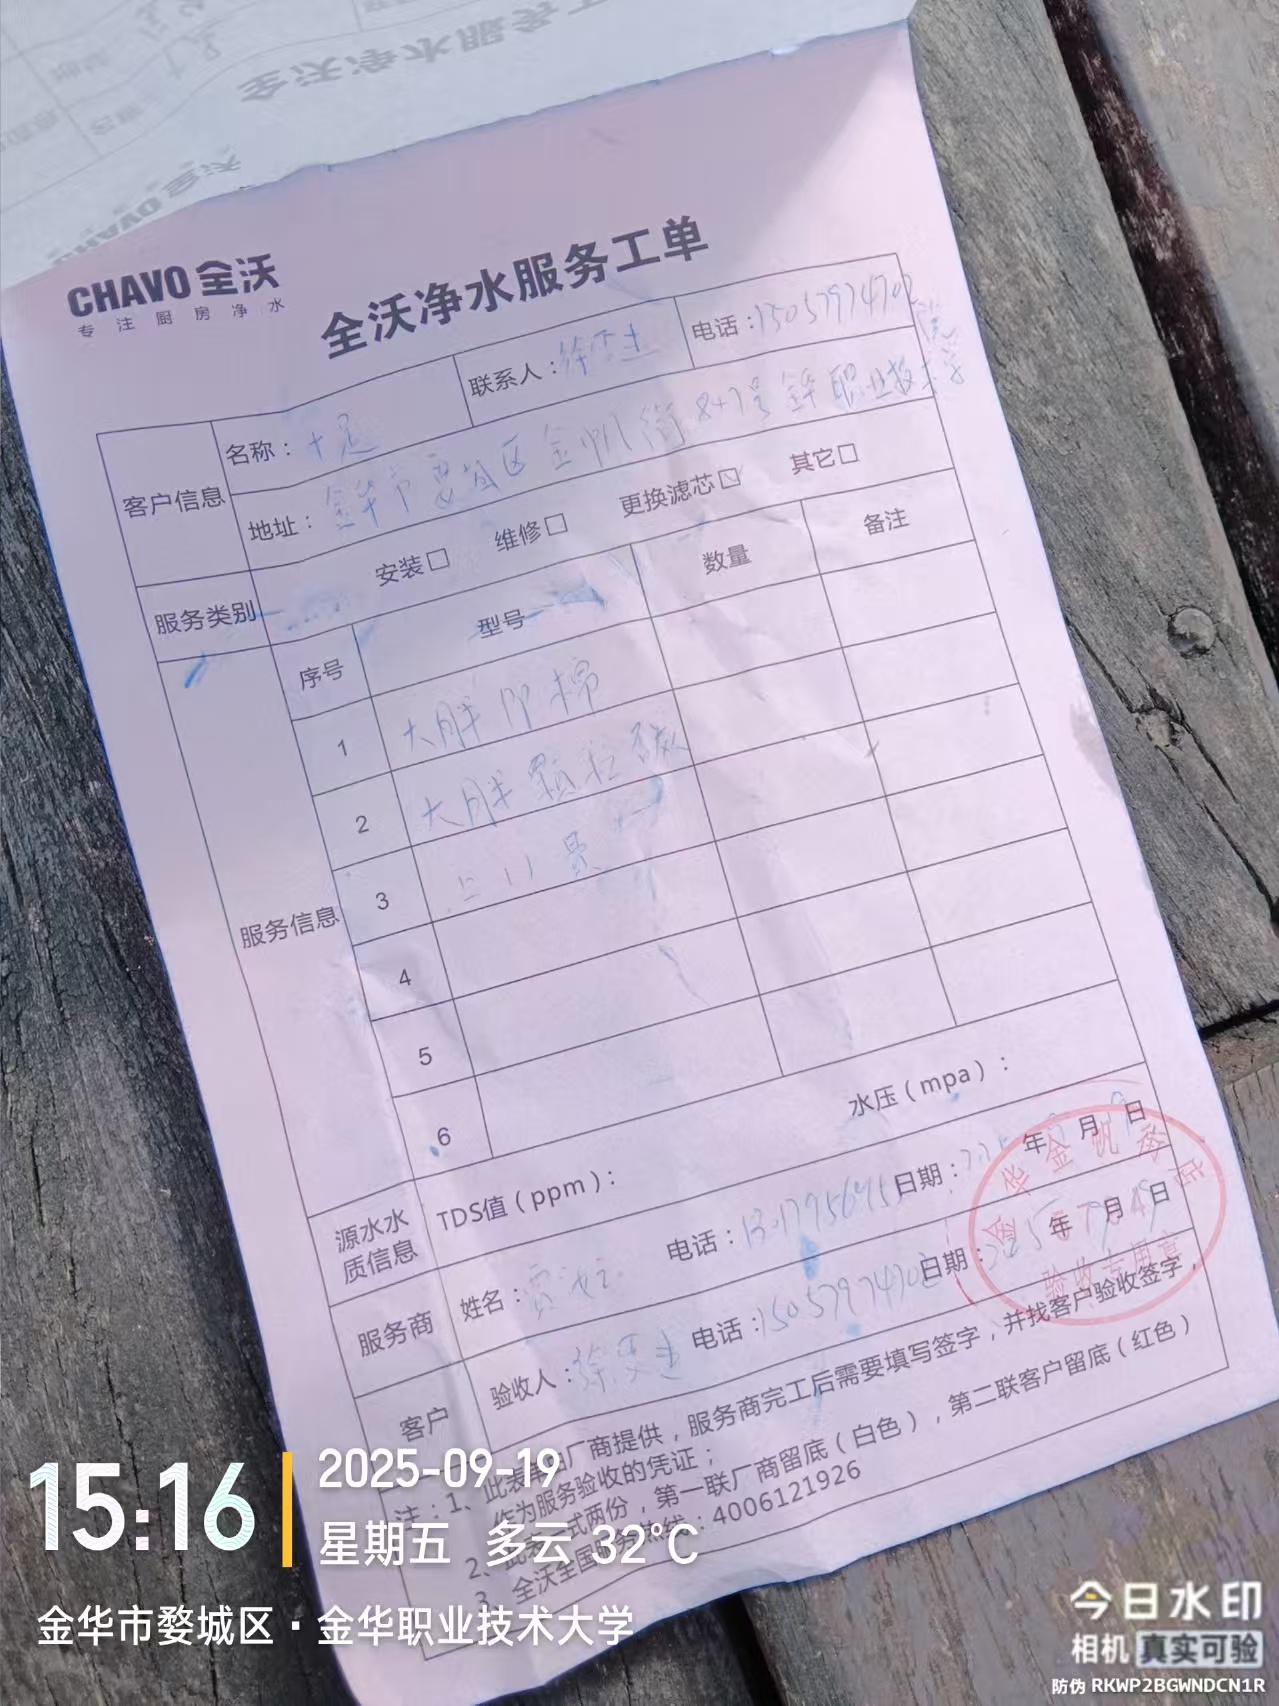 CHAVO 全沃
专注厨房净水
全沃净水服务工单
客户信息
名称：十足
联系人：徐
电话：15057974702
地址：金华市婺城区金帆街 号 金华职业技术学院
服务类别
安装☐ 维修☐ 更换滤芯☑ 其它☐
服务信息
序号 型号 数量 备注
1 大胖PP棉
2 大胖颗粒碳
3
4
5
6
源水水质信息
TDS值（ppm）： 水压（mpa）：
服务商
姓名：贾 电话： 日期： 年 月 日
客户
验收人：徐 电话：15057974702 日期： 年 月 日
金华金帆
验收专用章
注：1、此表单由厂商提供，服务商完工后需要填写签字，并找客户验收签字，
作为服务验收的凭证；
2、此表一式两份，第一联厂商留底（白色），第二联客户留底（红色）
3、全沃全国服务热线：4006121926
15:16
2025-09-19
星期五 多云 32°C
金华市婺城区·金华职业技术大学
今日水印
相机 真实可验
防伪 RKWP2BGWNDCN1R